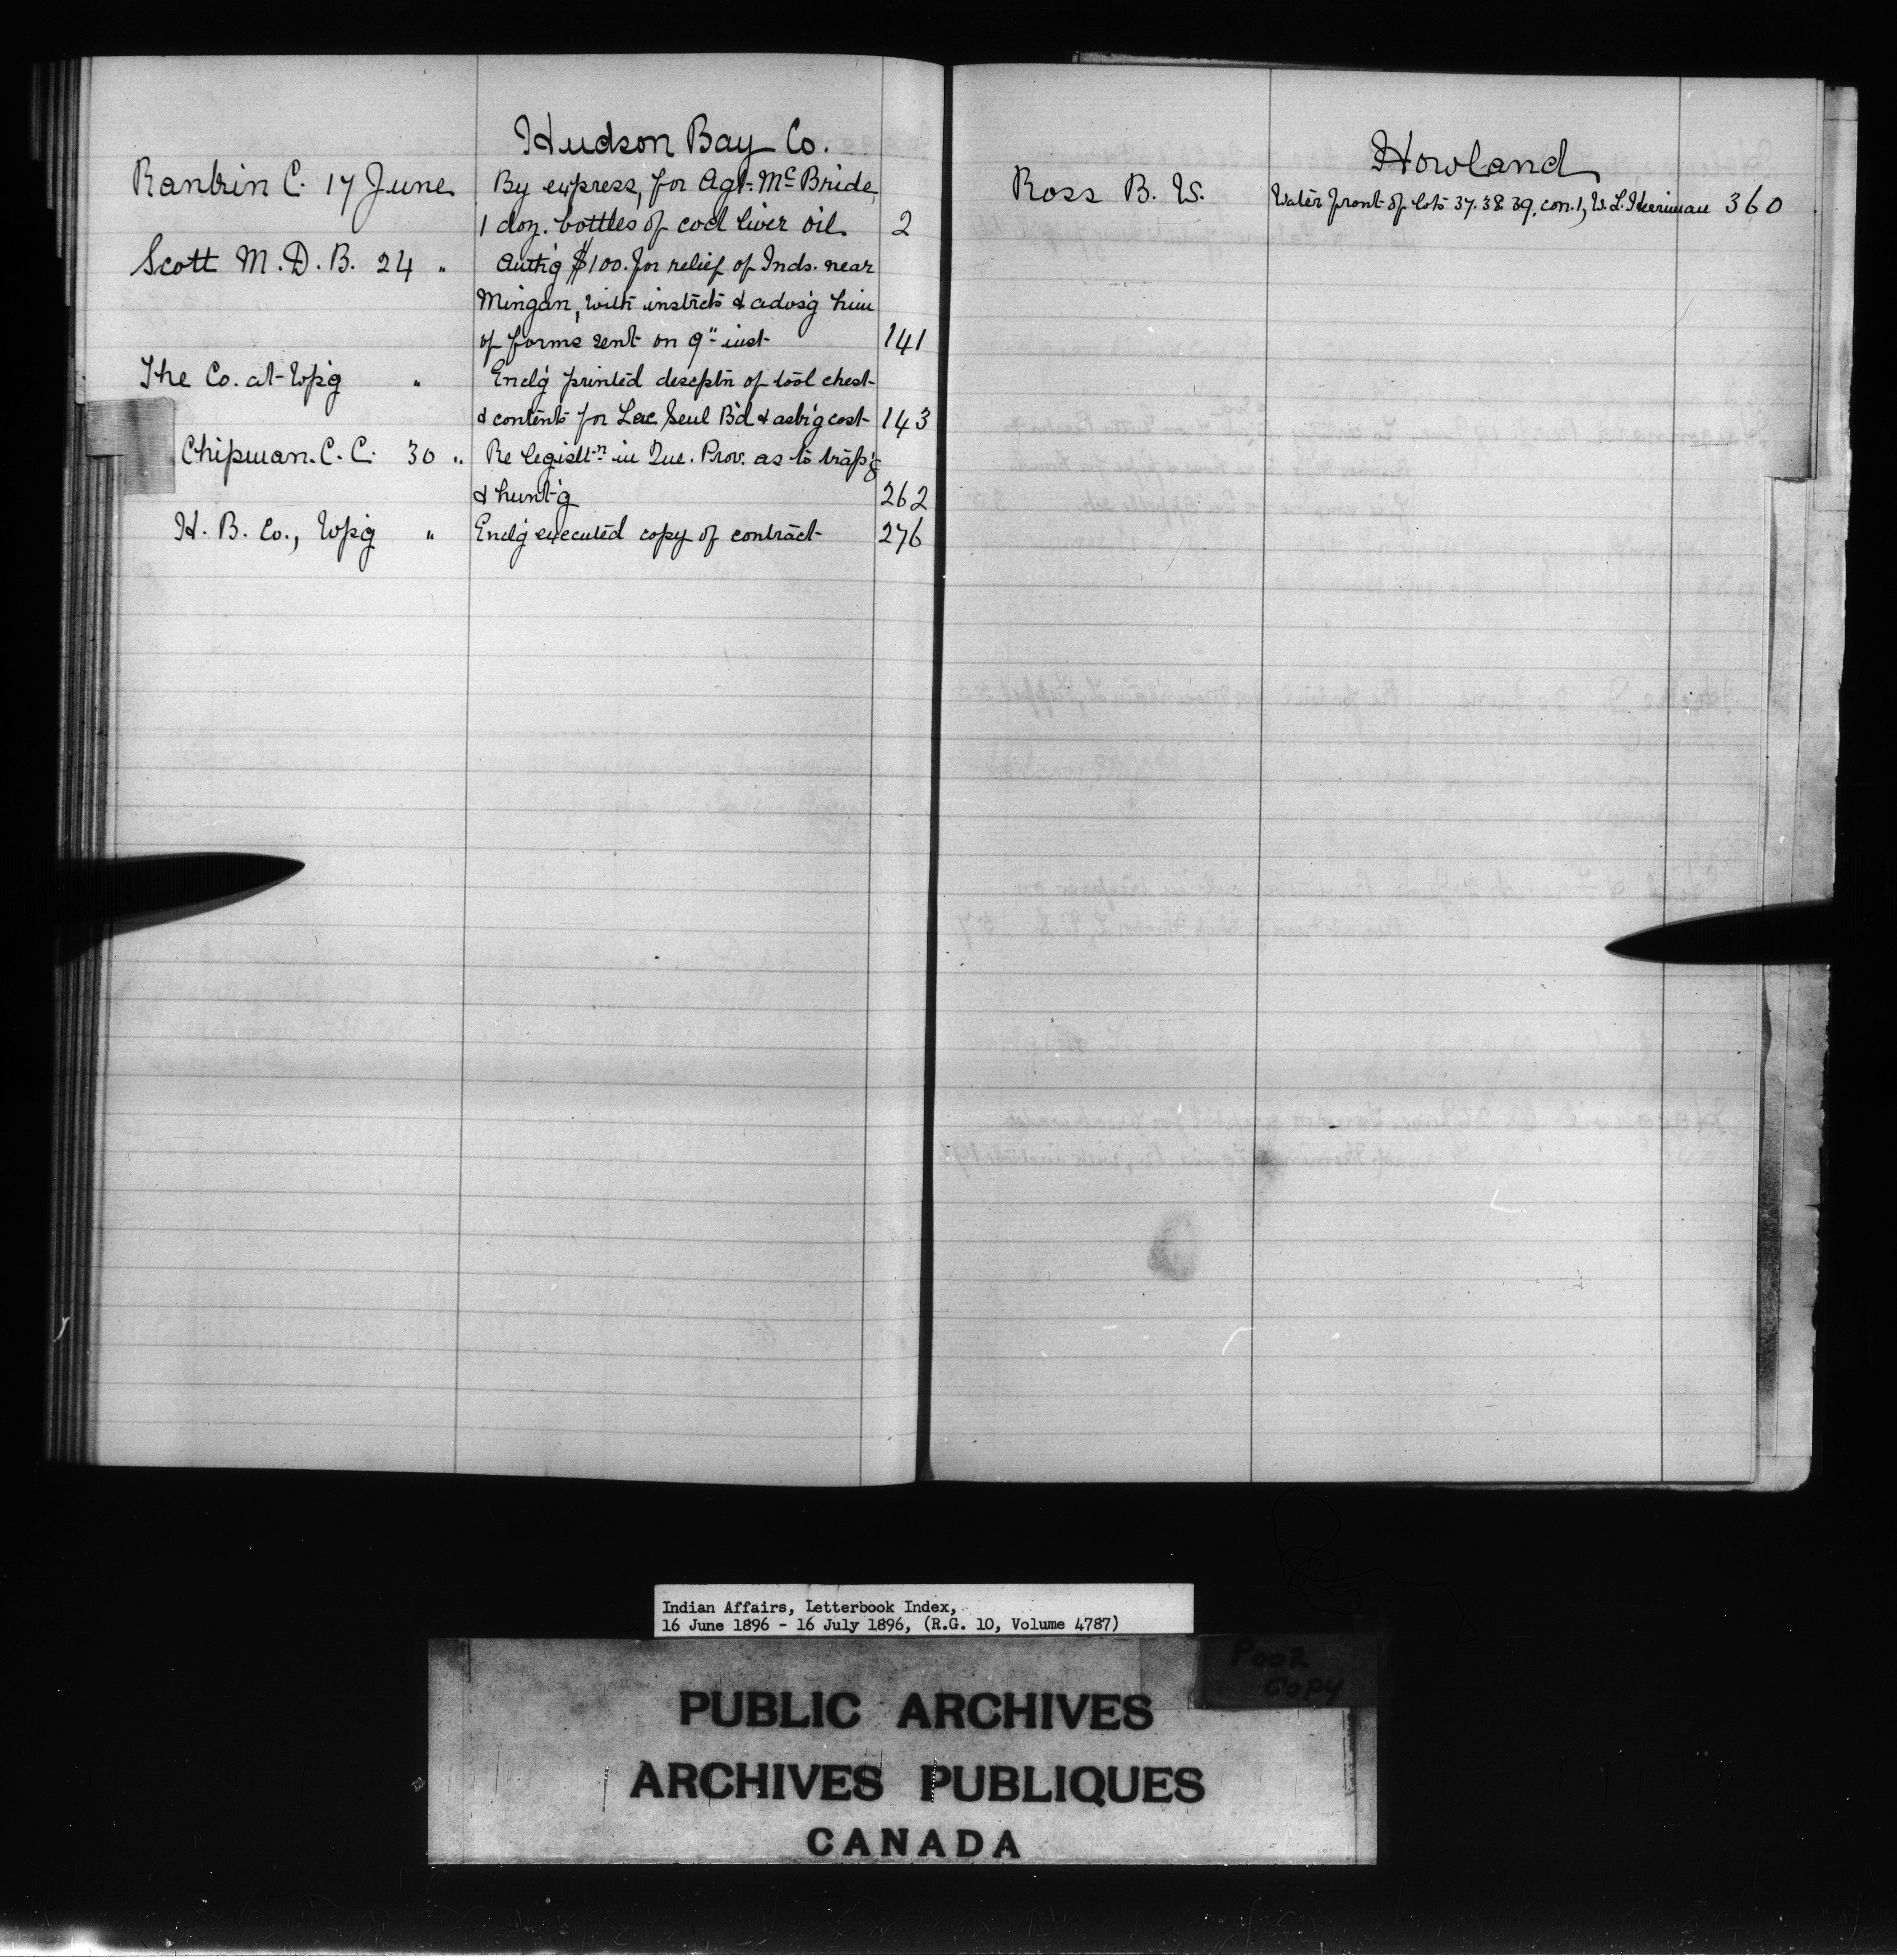 Hudson Bay Co.
Rankin C. 17 June By express, for Agt. McBride,
1 doz. bottles of cod liver oil 2
Scott M. D. B. 24 " Auth'g $100. for relief of Inds. near
Mingan, with instrcts & advs'g him
of forms sent on 9" inst. 141
The Co. at Wp'g " Encl'g printed descptn of tool chest
& contents for Lac Seul B'd & ask'g cost 143
Chipman. C. C. 30 " Re legislt:n in Que. Prov. as to trap'g
& hunt'g 262
H. B. Co., Wp'g " Encl'g executed copy of contract 276
Howland
Ross B. W. Water front of lots 37. 38. 39, con. 1, W. L. Herriman 360
Indian Affairs, Letterbook Index,
16 June 1896 - 16 July 1896, (R.G. 10, Volume 4787)
POOR
COPY
PUBLIC ARCHIVES
ARCHIVES PUBLIQUES
CANADA